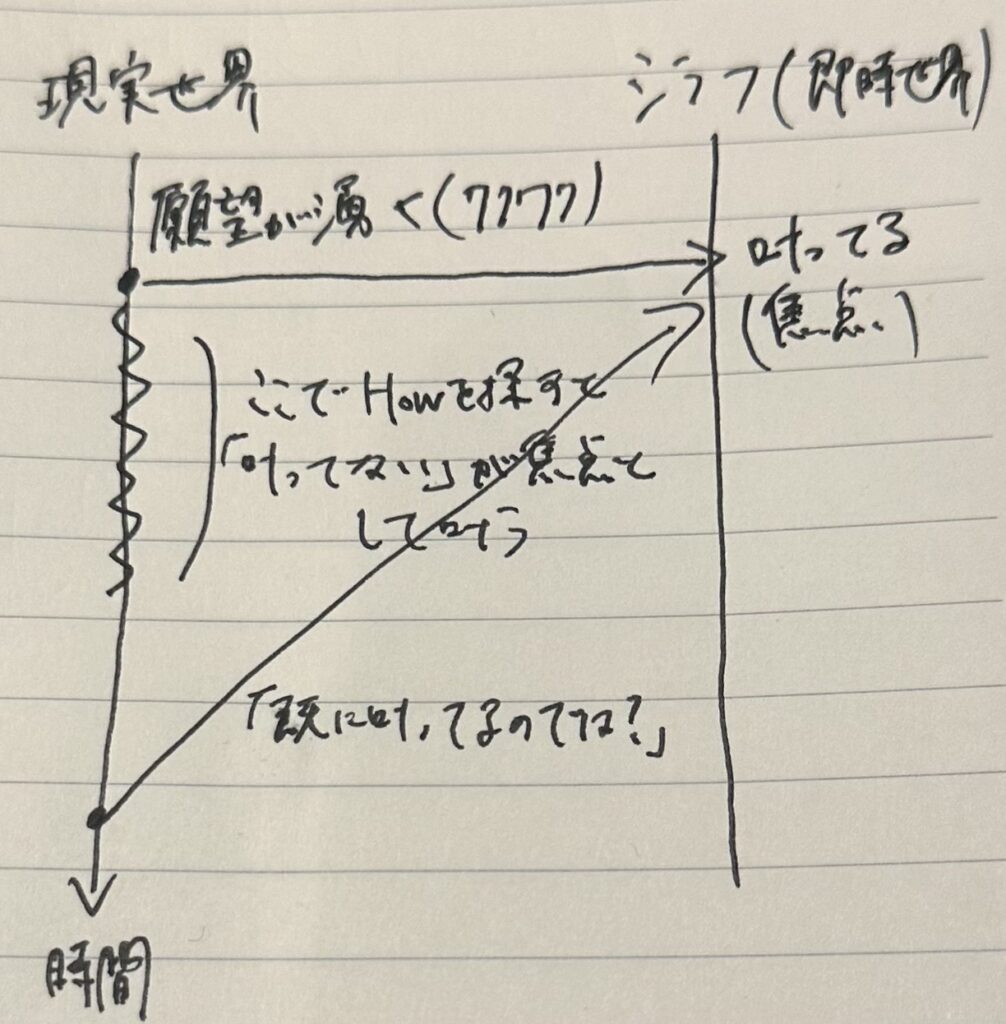 現実世界
ジラフ(即時世界)
願望が湧く(ワクワク)
叶ってる
(焦点)
ここでHowを探すと
「叶ってない」が焦点と
して叶う
「既に叶ってるのでは?」
時間